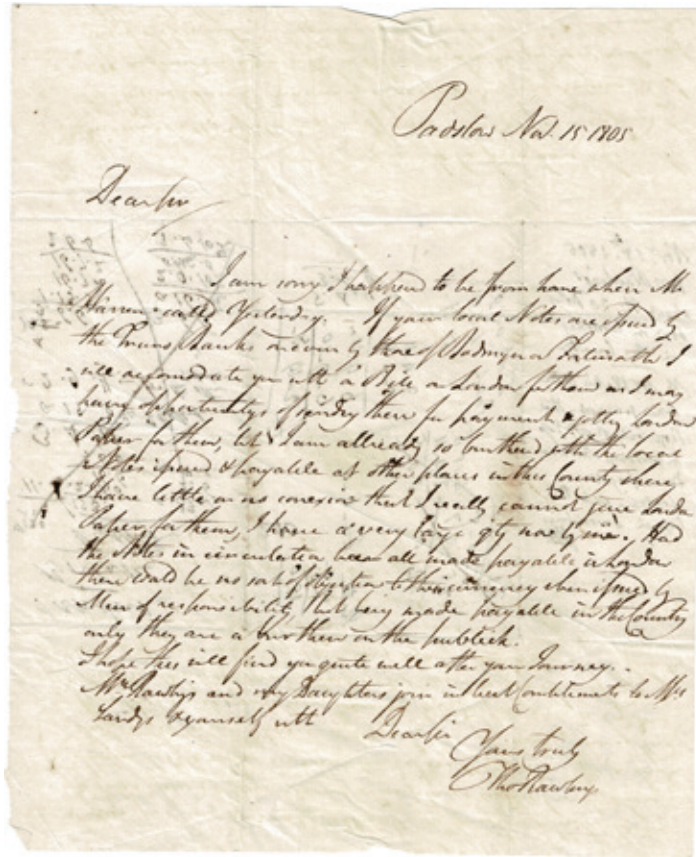 Padstow Nov. 15 1805
Dear Sir
I am sorry I happened to be from home when Mr
Warren called Yesterday. If your local Notes are issued by
the Truro Banks or even by those of Bodmyn or Falmouth I
will accomodate you with a Bill on London for them as I may
have opportunitys of sending them for payment & getting London
Paper for them, but I am allready so burthend with the local
Notes issued & payable at other places in this County where
I have little or no conexion that I really cannot give London
Paper for them, I have a very large qty now by me. Had
the Notes in circulation been all made payable in London
there could be no sort of objection to their currency when issued by
Men of responsibility, but being made payable in the County
only they are a burthen on the publick.
I hope this will find you quite well after your Journey.
Mrs Rawlings and my Daughters join in best Compliments to Mrs
Sandys & yourself with
Dear Sir
Yours truly
Thos Rawlings